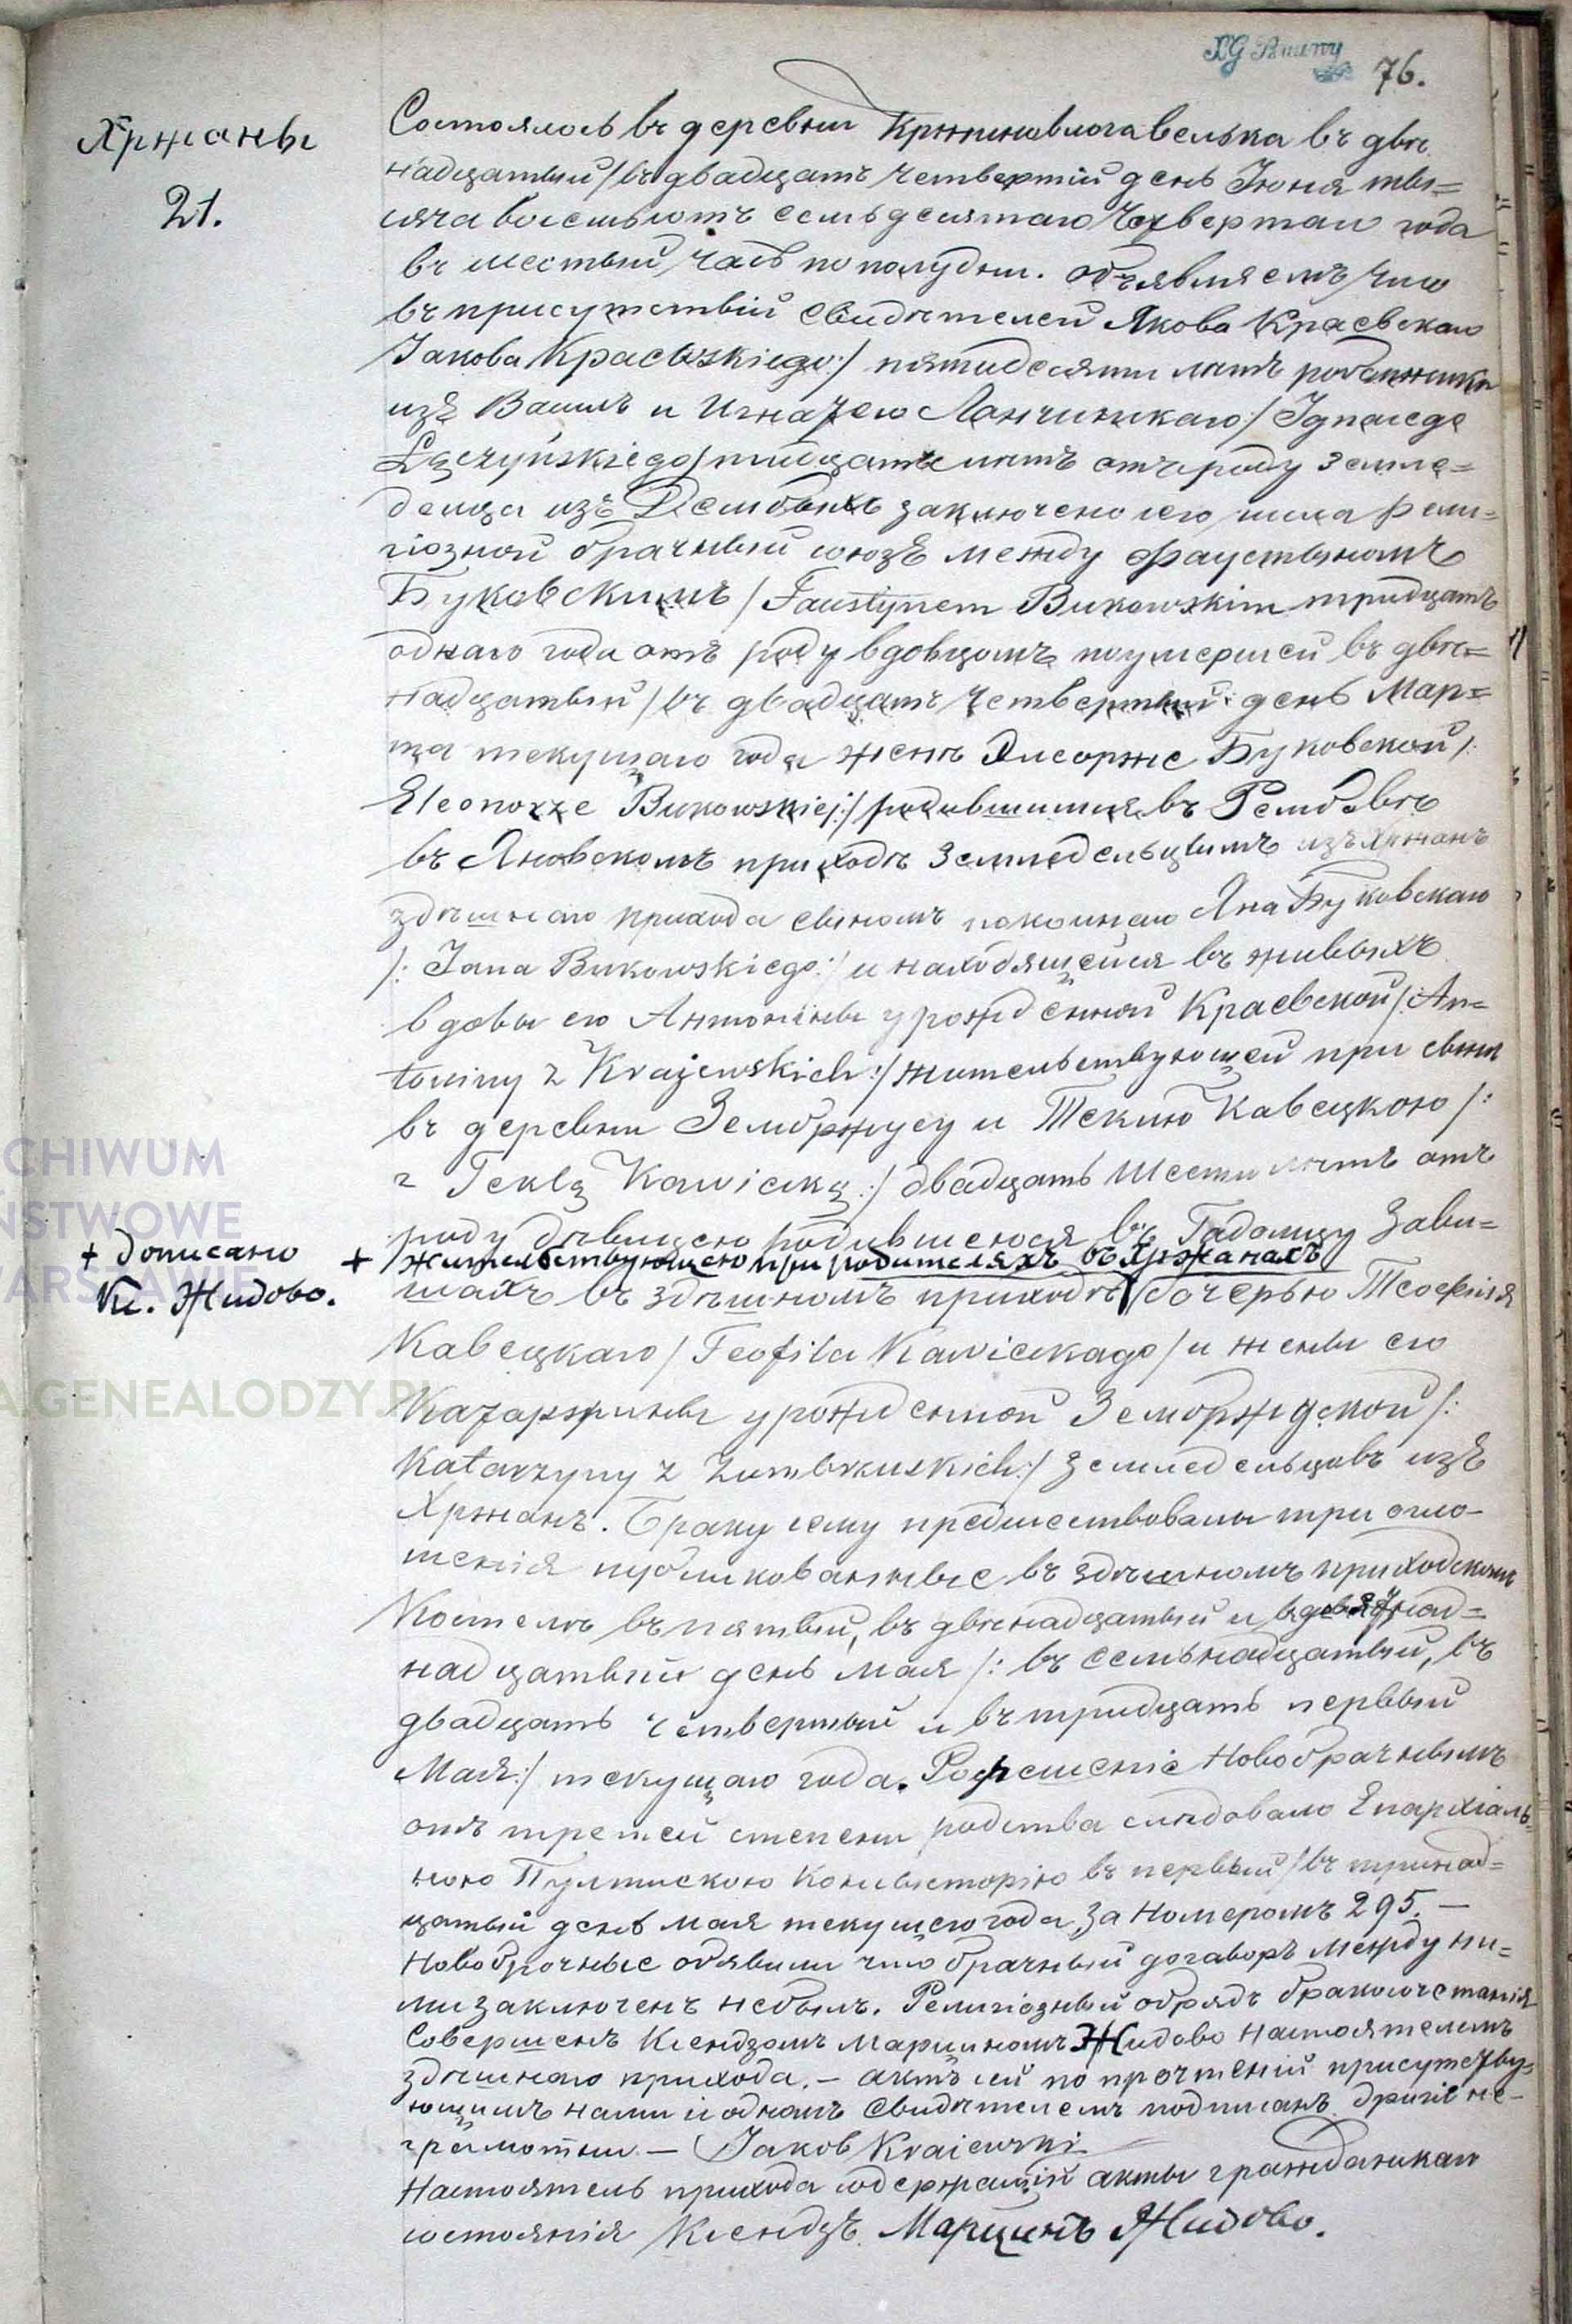 76.
Хржаны
21.
Состоялось въ деревни Кржиновлога велька въ двѣ
надцатый / въ двадцать четвертій день Іюня ты=
сяча восемьсотъ семьдесятаго четвертаго года
въ шестый часъ по полудни. объявляемъ что
въ присутствіи свидѣтелей Якова Краевскаго
Jakoba Krajewskiego:/ пятидесяти лѣтъ
изъ и Игнацего Лончинскаго / Ignacego
Łączyńskiego / тридцать лѣтъ отъ роду земле=
дельца изъ заключено сего числа рели=
гіозной брачный союзъ между Фаустыномъ
Буковскимъ / Faustynem Bukowskim тридцать
однаго года отъ роду вдовцомъ по умершей въ двѣ=
надцатый / въ двадцать четвертый день Мар=
та текущаго года женѣ Буковской /:
Eleonorze Bukowskiej:/ родившимся въ
въ Яновскомъ приходѣ земледельцемъ изъ Хржанъ
здѣшнаго прихода сыномъ покойнаго Яна Буковскаго
/: Jana Bukowskiego:/ и находящейся въ живыхъ
вдовы его Антонины урожденной Краевской /: An=
toniny z Krajewskich:/ жительствующей при сынѣ
въ деревни и Теклю Кавецкою /:
z Teklą Kawiecką:/ двадцать шести лѣтъ отъ
роду дѣвицею родившеюся въ Гадомцу Зави=
+ дописано
Кс. Жидово.
+ жительствующею при родителяхъ въ Хржанахъ
шахъ въ здѣшномъ приходѣ дочерью Теофиля
Кавецкаго / Teofila Kawieckago / и жены его
Катаржины урожденной /:
Katarzyny z :/ земледельцовъ изъ
Хржанъ. Браку сему предшествовалы три огло=
шенія публикованные въ здѣшномъ приходскомъ
Костелѣ въ пятый, въ двѣнадцатый и
надцатый день мая /: въ семьнадцатый, въ
двадцать четвертый и въ тридцать первый
Мая:/ текущаго года. Розрешеніе новобрачнымъ
отъ третей степени родства слѣдовало Епархіаль=
ною Пултускою Консысторію въ первый / въ тринад=
цатый день мая текущего года за номеромъ 295. —
Новобрачные объявили что брачный договоръ между ни=
ми заключенъ небылъ. Религіозный обрядъ бракосочетанія
совершенъ Ксендзомъ Марциномъ Жидово настоятелемъ
здѣшнаго прихода. — актъ сей по прочтеніи присутству=
ющимъ нами и однимъ свидѣтелемъ подписанъ не=
грамотни — Jakob Krajewski
Настоятель прихода содержащій акты гражданскаго
состоянія Ксендзъ Марцинъ Жидово.